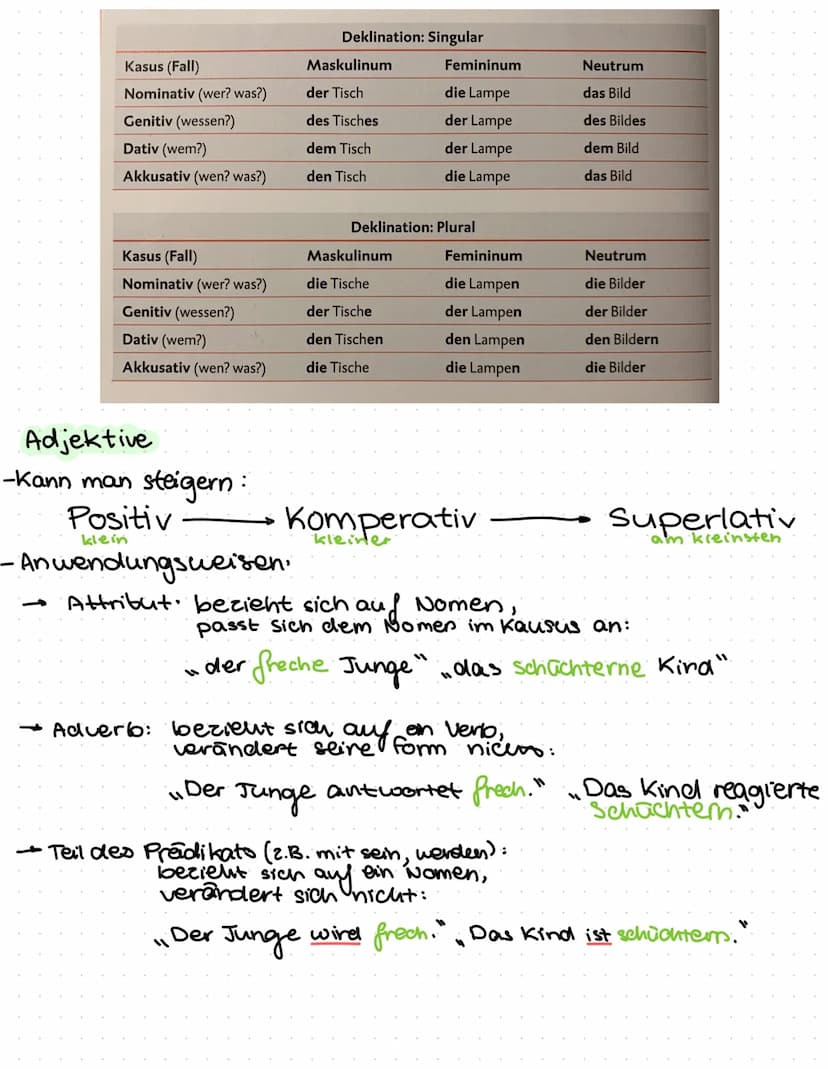 Deklination: Singular
Kasus (Fall) Maskulinum Femininum Neutrum
Nominativ (wer? was?) der Tisch die Lampe das Bild
Genitiv (wessen?) des Tisches der Lampe des Bildes
Dativ (wem?) dem Tisch der Lampe dem Bild
Akkusativ (wen? was?) den Tisch die Lampe das Bild
Deklination: Plural
Kasus (Fall) Maskulinum Femininum Neutrum
Nominativ (wer? was?) die Tische die Lampen die Bilder
Genitiv (wessen?) der Tische der Lampen der Bilder
Dativ (wem?) den Tischen den Lampen den Bildern
Akkusativ (wen? was?) die Tische die Lampen die Bilder
Adjektive
-Kann man steigern:
Positiv → Komperativ → Superlativ
klein kleiner am kleinsten
- Anwendungsweisen:
→ Attribut: bezieht sich auf Nomen,
passt sich dem Nomen im Kausus an:
„der freche Junge“ „das schüchterne Kind“
→ Adverb: bezieht sich auf ein Verb,
verändert seine Form nicht:
„Der Junge antwortet frech.“ „Das Kind reagierte
schüchtern.“
→ Teil des Prädikats (z.B. mit sein, werden):
bezieht sich auf ein Nomen,
verändert sich nicht:
„Der Junge wird frech.“ „Das Kind ist schüchtern.“